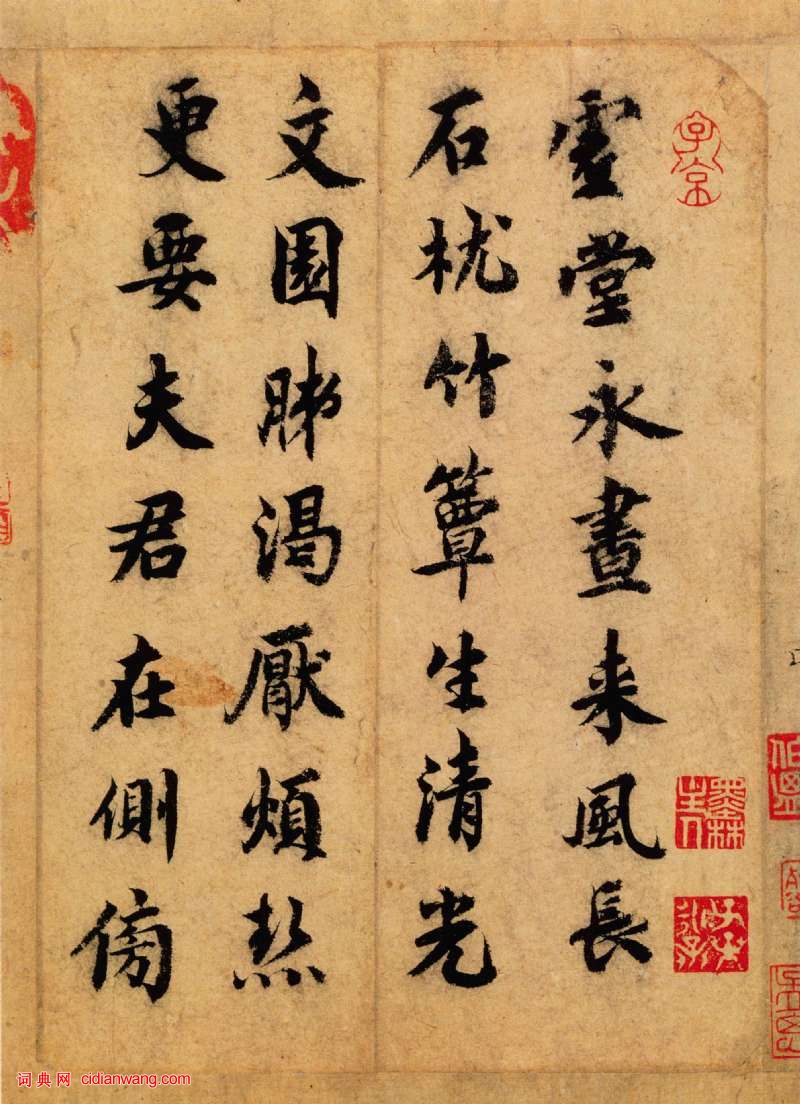 虛堂永晝来風長
石枕竹簟生清光
文園肺渴厭煩熱
更要夫君在側傍
词典网 cidianwang.com